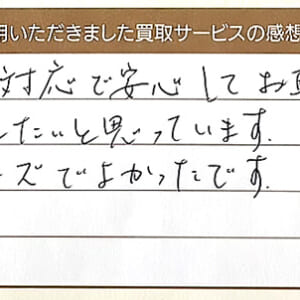 用いただきました買取サービスの感想
対応で安心してお
したいと思っています.
ーズでよかったです.